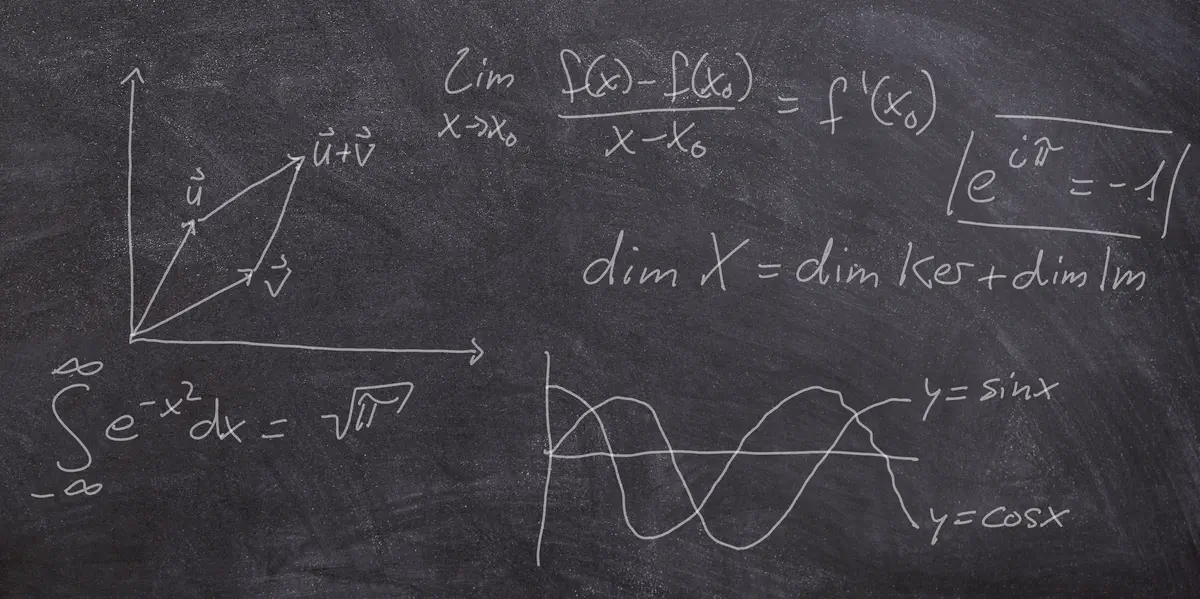 lim x→x₀ (f(x)-f(x₀))/(x-x₀) = f'(x₀)
u⃗+v⃗
u⃗
v⃗
e^{iπ} = -1
dim X = dim Ker + dim Im
∫_{-∞}^{∞} e^{-x²}dx = √π
y=sinx
y=cosx